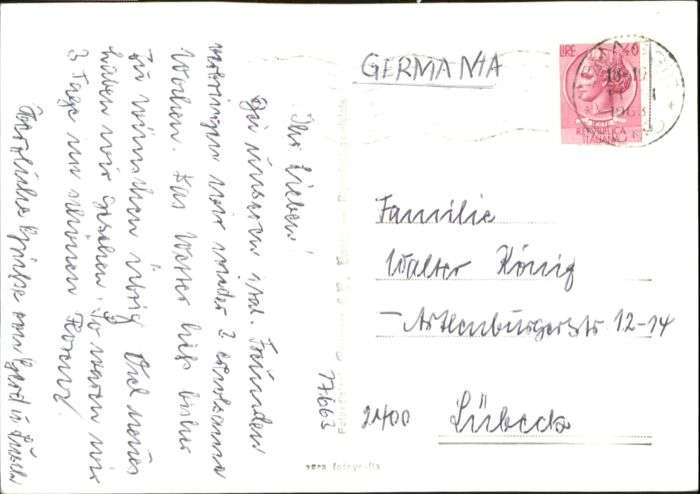 GERMANIA
LIRE 40
REPUBBLICA
ITALIANA
17.6.63
Ihr Lieben!
Bei unseren ital. Freunden
verbringen wir wieder 3 erholsame
Wochen. Das Wetter ließ bisher
zu wünschen übrig. Viel neues
haben wir gesehen. So waren wir
3 Tage im schönen Florenz.
Herzliche Grüße von Gerd u.
Familie
Walter König
Artlenburgerstr 12-14
2400 Lübeck
vera fotografia